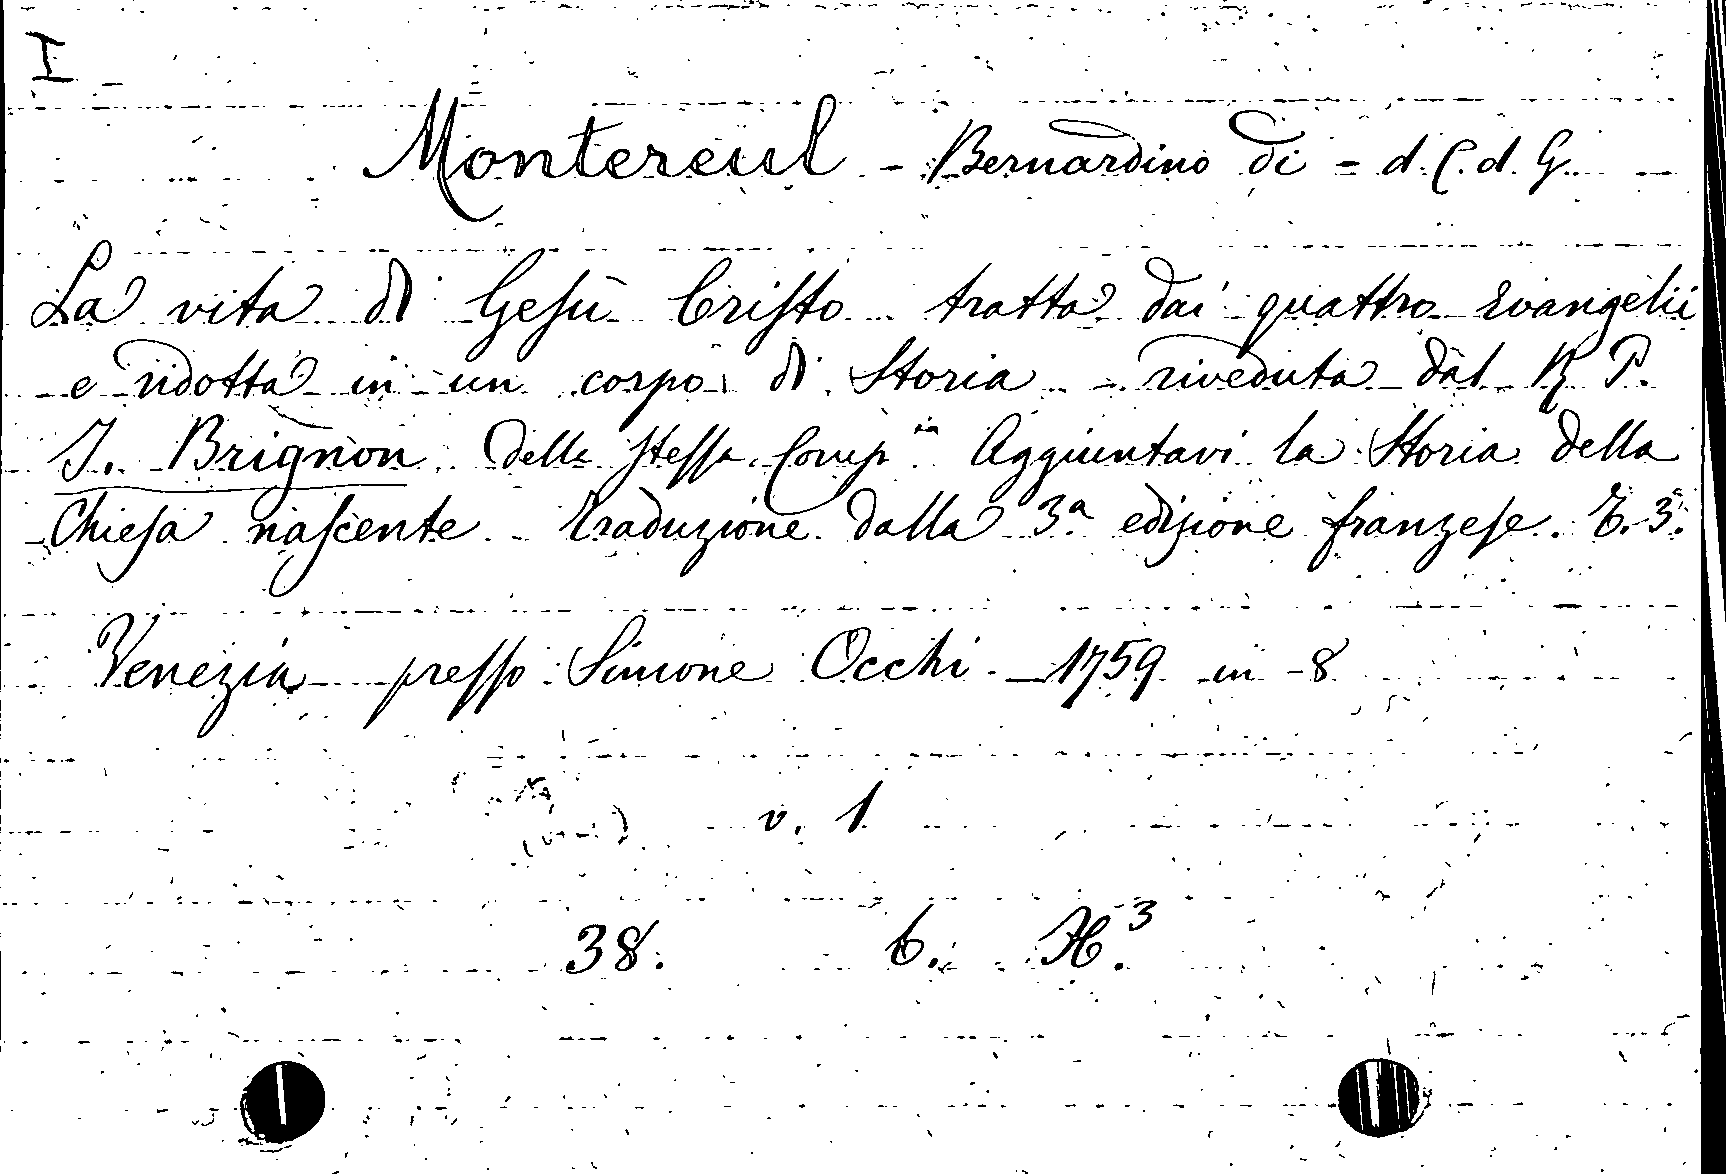 I
Montereul - Bernardino di = d. C. d. G.
La vita di Gesù Cristo tratta dai quattro evangelii
e ridotta in un corpo di Storia - riveduta dal R P.
J. Brignon della stessa Comp.ia Aggiuntavi la Storia della
Chiesa nascente - traduzione dalla 3ª edizione franzese. T. 3º
Venezia presso Simone Occhi - 1759 in - 8
v. 1
38. 6. H.3